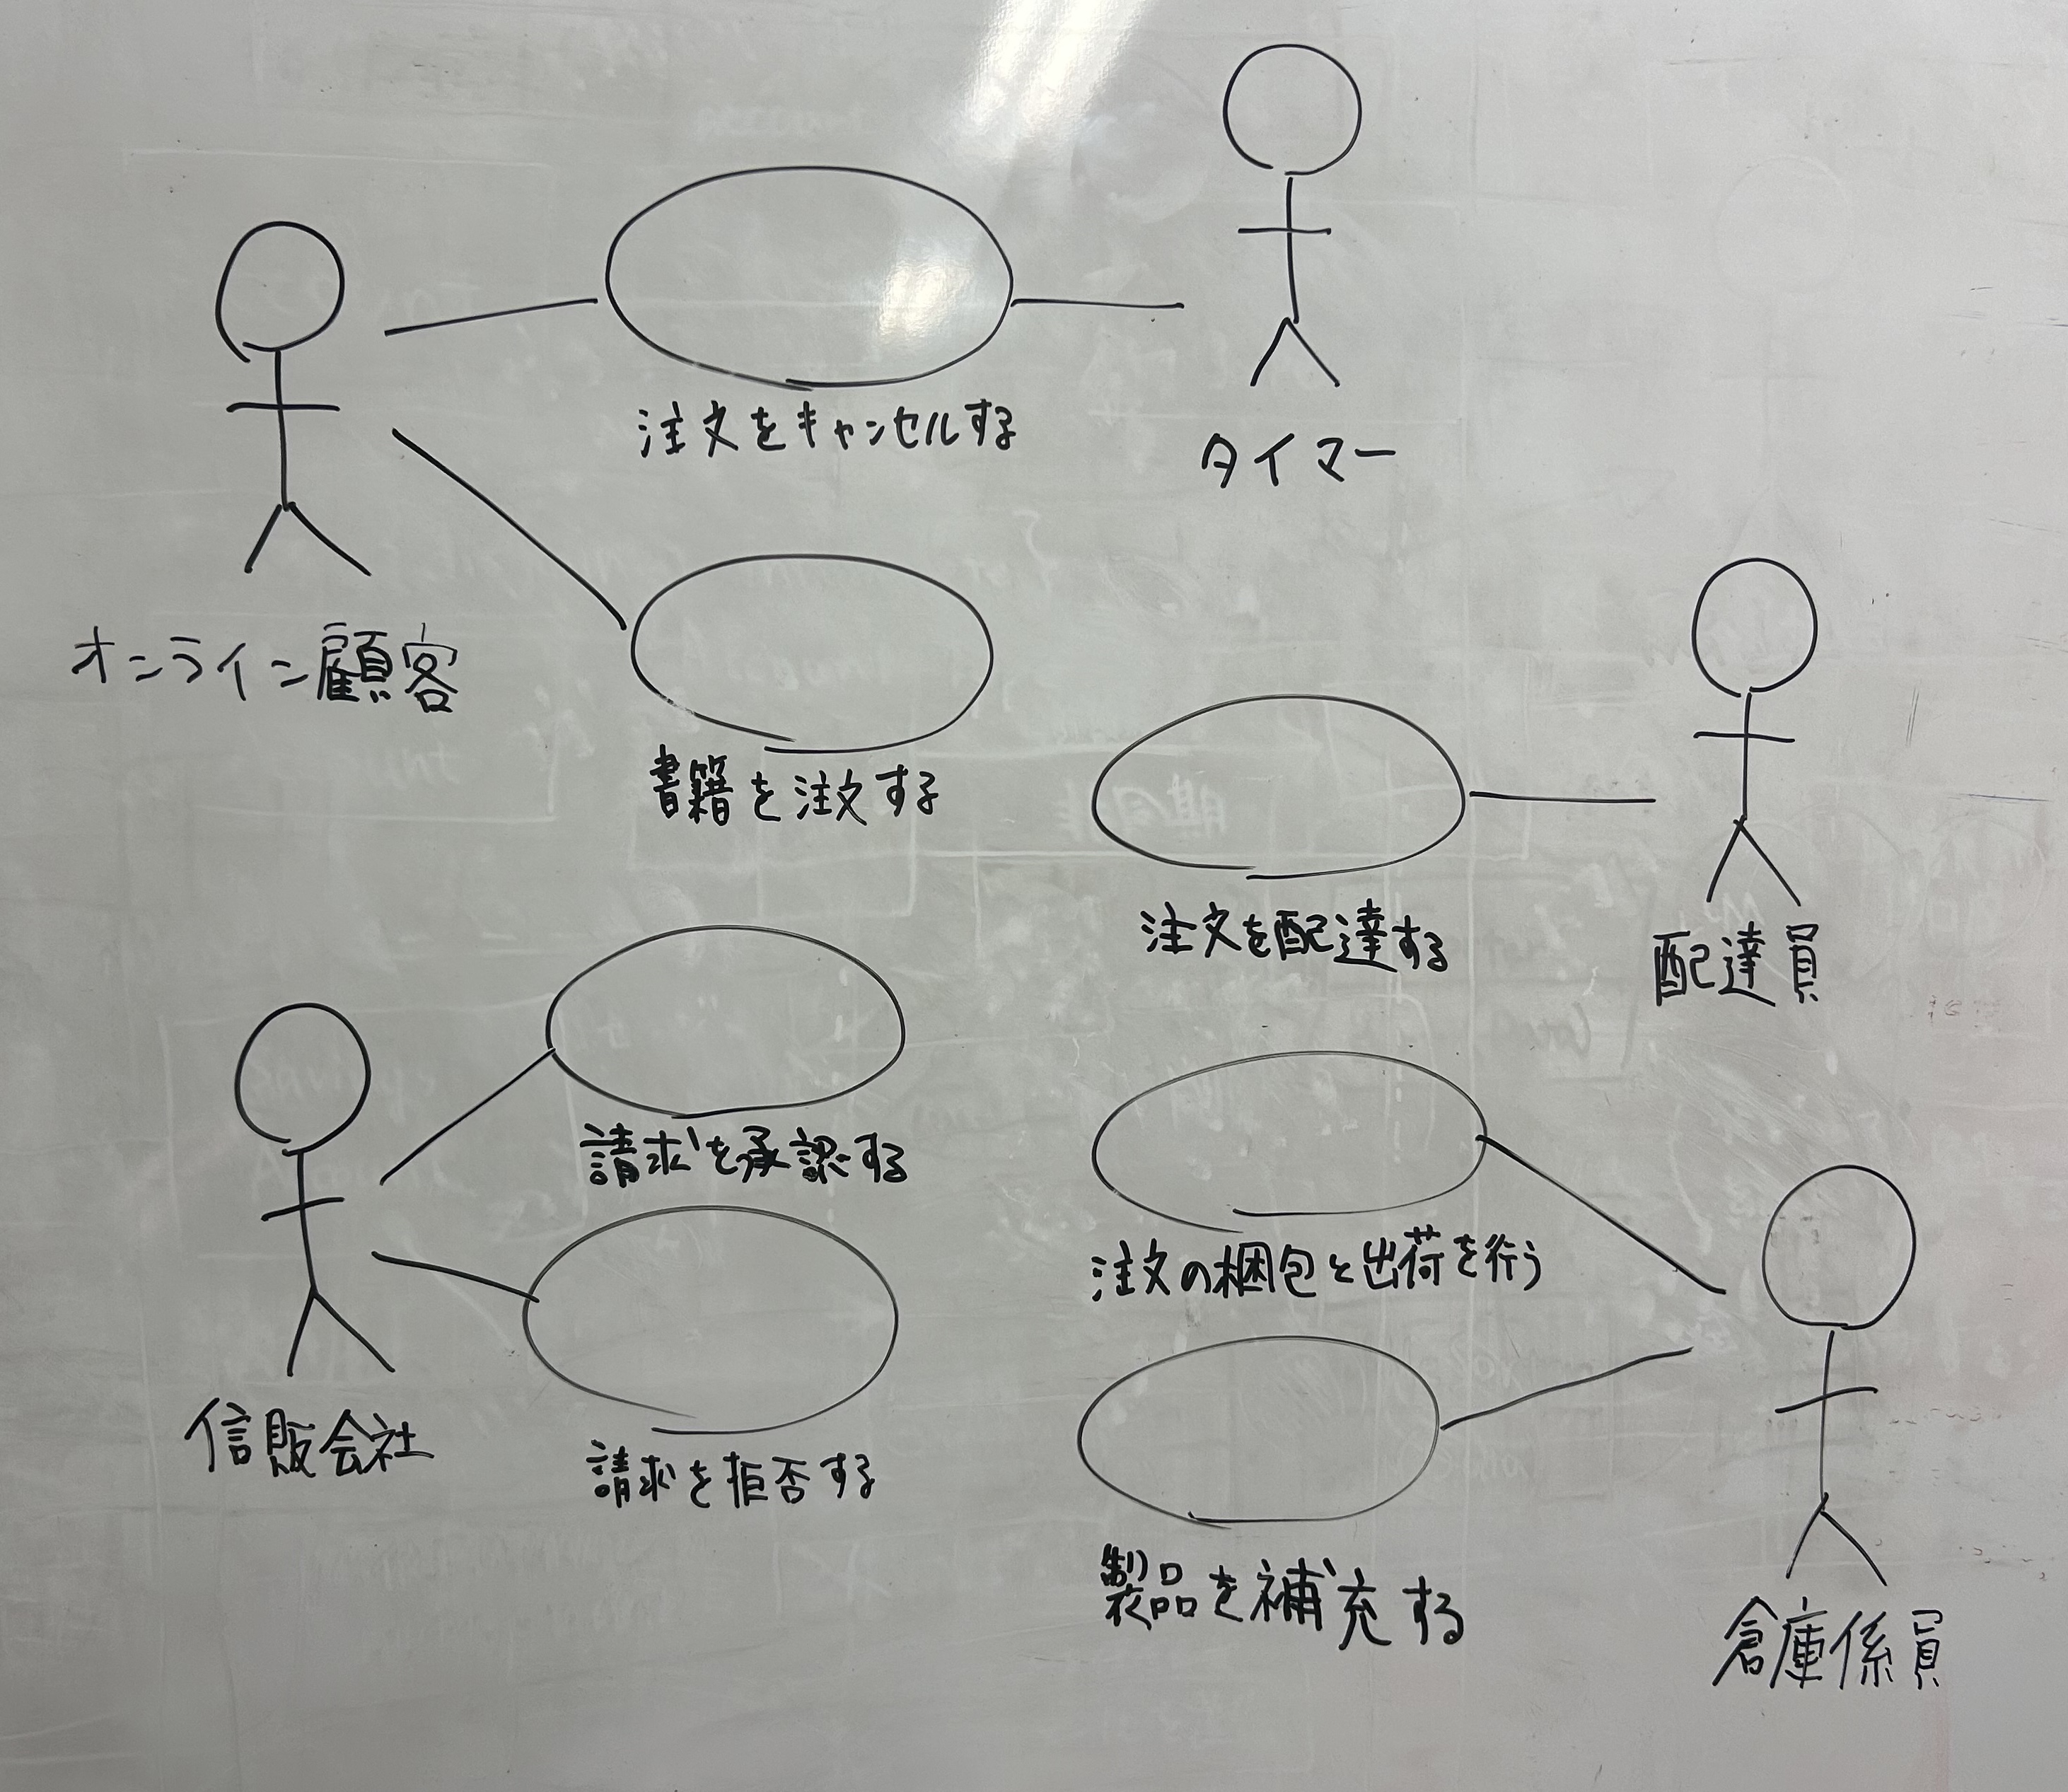 注文をキャンセルする
タイマー
オンライン顧客
書籍を注文する
注文を配達する
配達員
請求を承認する
注文の梱包と出荷を行う
信販会社
請求を拒否する
製品を補充する
倉庫係員